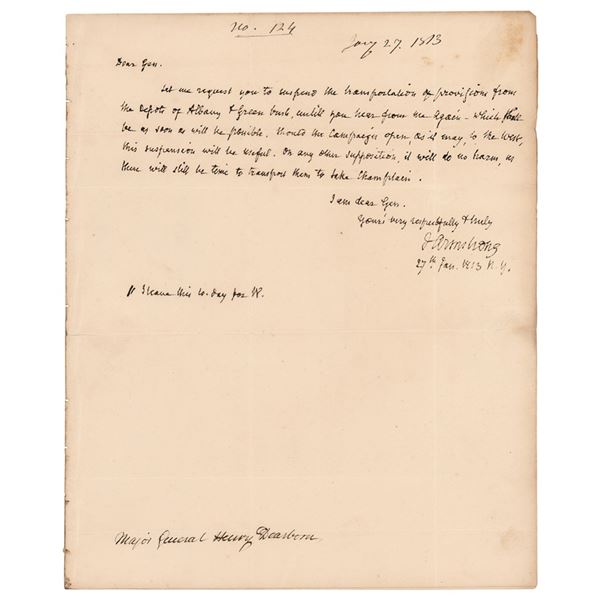 No. 124
Jany 27. 1813
Dear Gen.
Let me request you to suspend the transportation of provisions from
the depots of Albany & Green bush, untill you hear from me again - which shall
be as soon as will be possible. Should the Campaign open, as it may, to the West,
this suspension will be useful. On any other supposition, it will do no harm, as
there will still be time to transport them to Lake Champlain.
I am dear Gen.
Yours very respectfully & truly
J Armstrong
27th Jan. 1813 N.Y.
I leave this to-day for W.
Major General Henry Dearborn